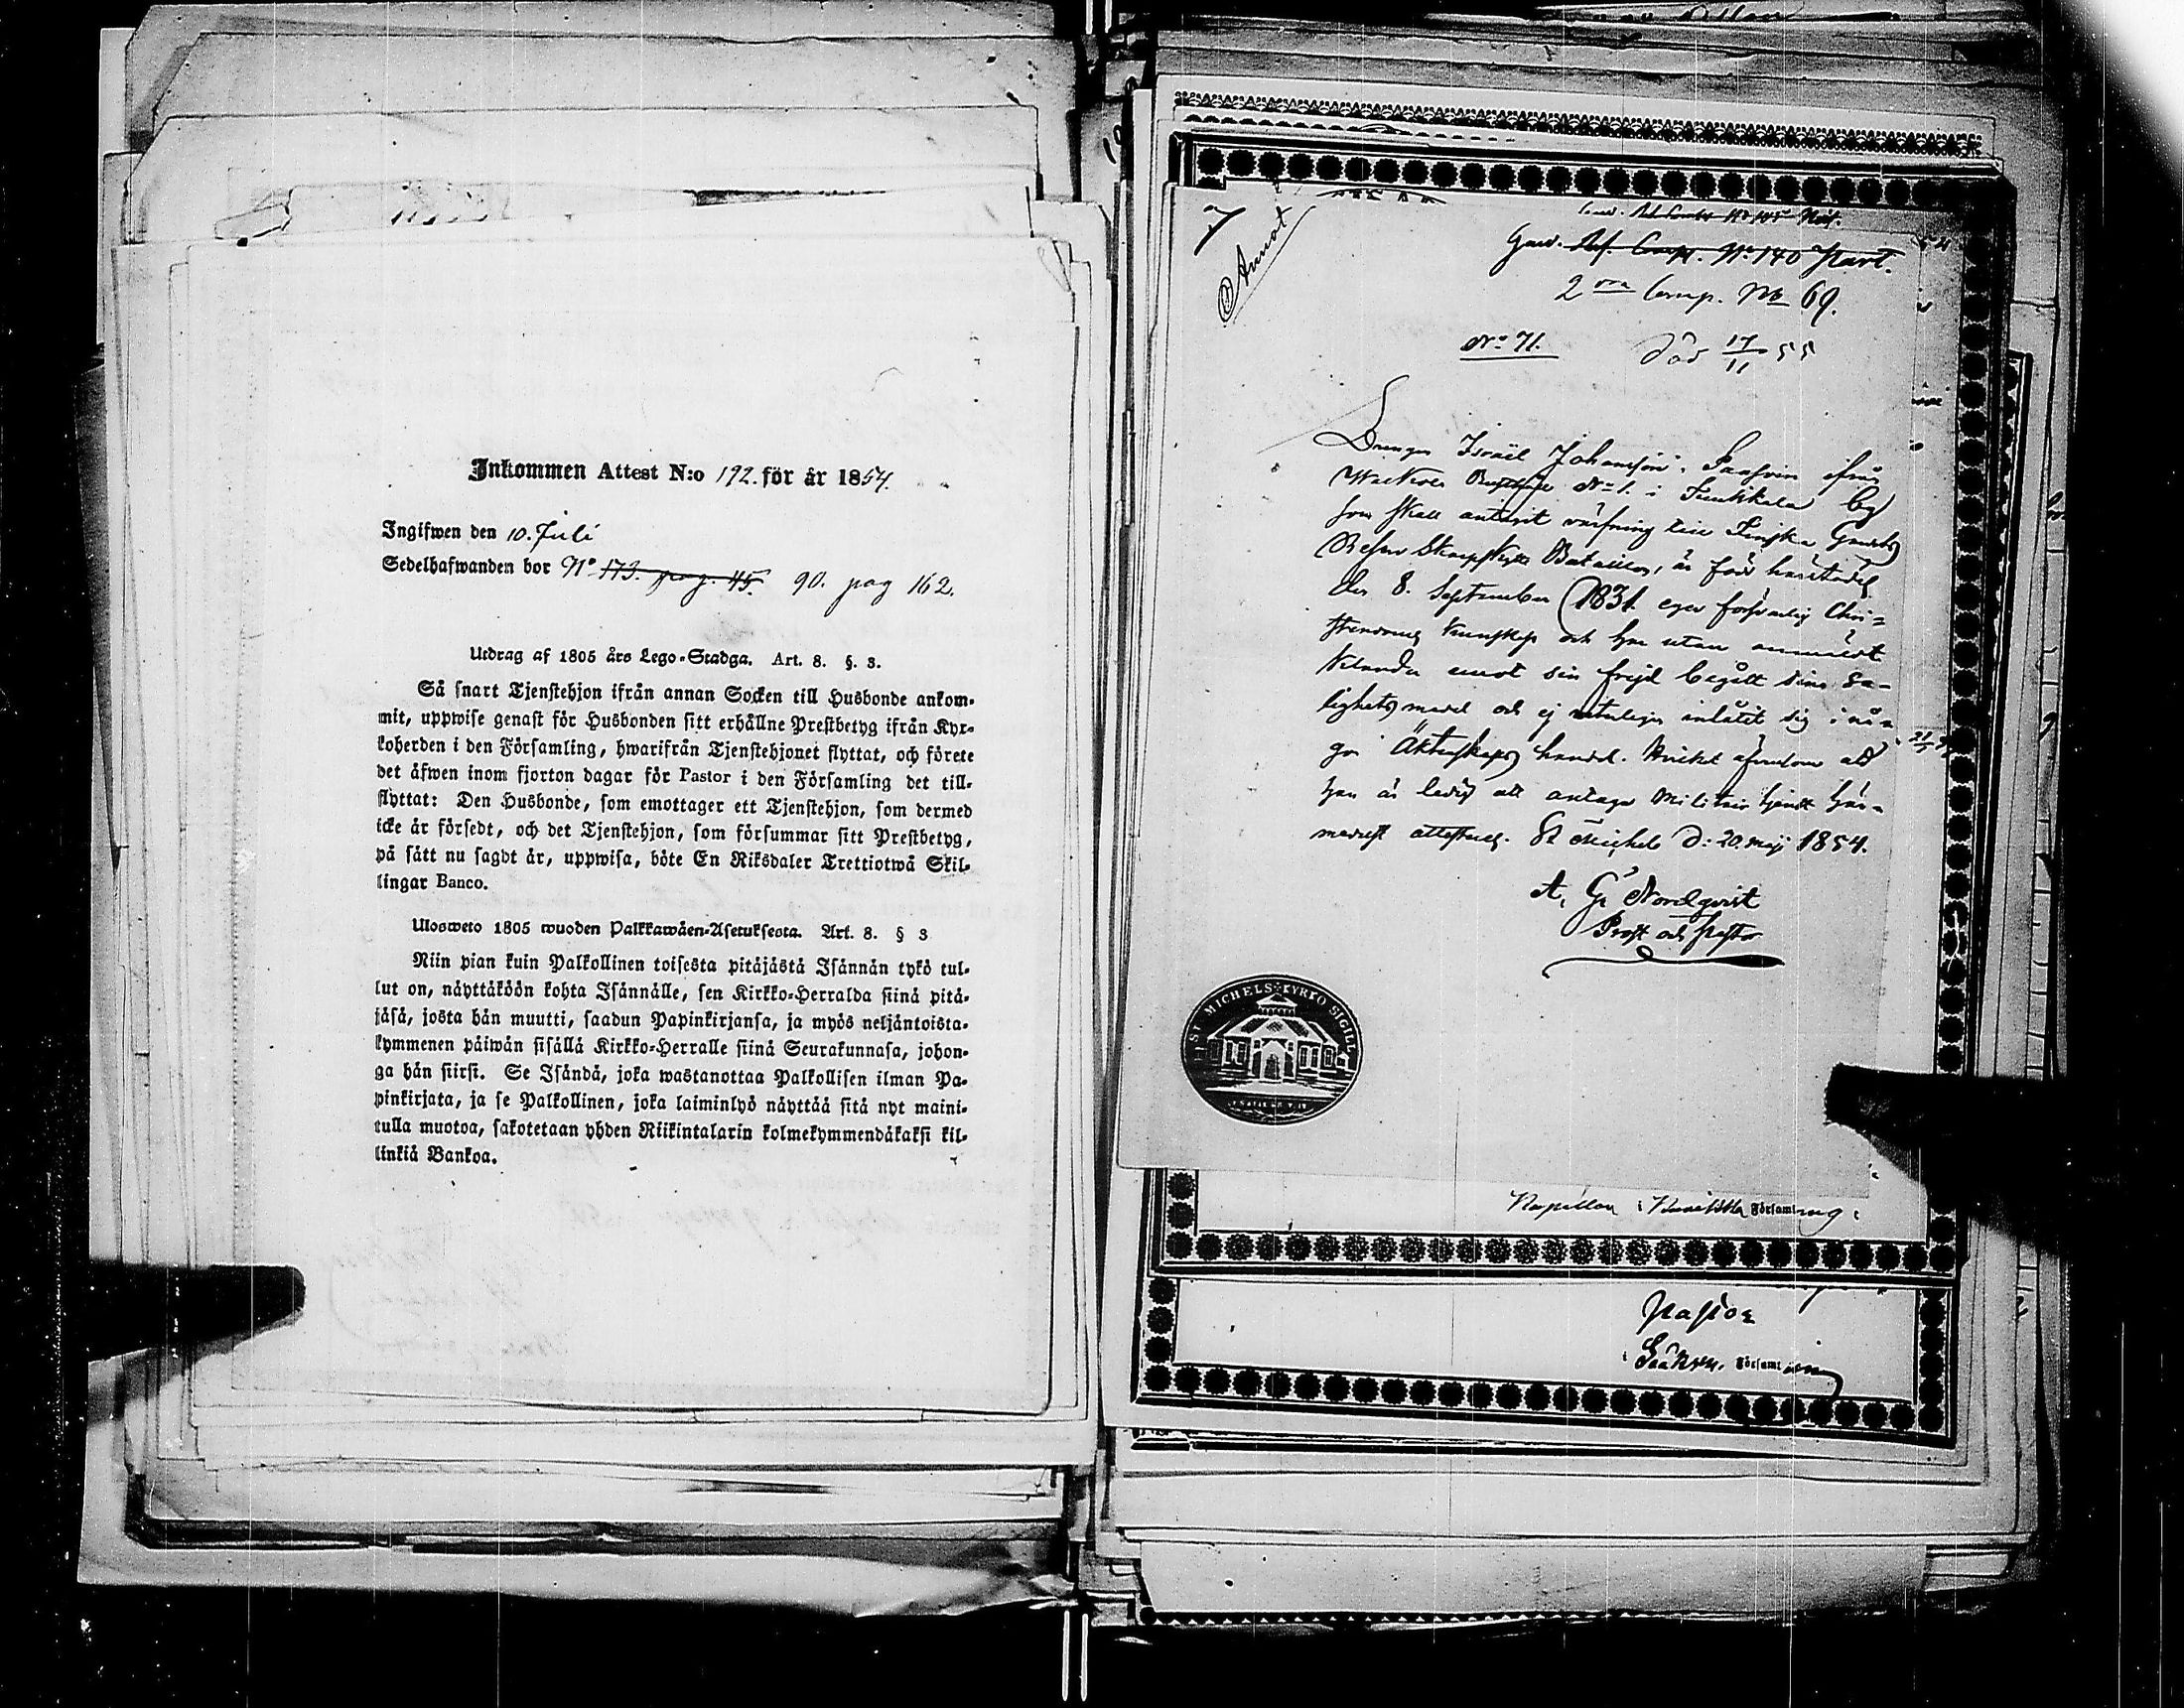 Inkommen Attest N:o 192. för år 1854.
Ingifwen den 10. Juli
Sedelhafwanden bor No 173. pag. 45. 90. pag 162.
Utdrag af 1805 års Lego-Stadga. Art. 8. §. 3.
Så snart Tjenstehjon ifrån annan Socken till Husbonde ankom-
mit, uppwise genast för Husbonden sitt erhållne Prestbetyg ifrån Kyr-
koherden i den Församling, hwarifrån Tjenstehjonet flyttat, och förete
det äfwen inom fjorton dagar för Pastor i den Församling det till-
flyttat: Den Husbonde, som emottager ett Tjenstehjon, som dermed
icke är försedt, och det Tjenstehjon, som försummar sitt Prestbetyg,
på sätt nu sagdt är, uppwisa, böte En Riksdaler Trettiotwå Skil-
lingar Banco.
Ulosweto 1805 wuoden Palkkawäen-Asetuksesta. Art. 8. § 3
Niin pian kuin Palkollinen toisesta pitäjästä Isännän tykö tul-
lut on, näyttäköön kohta Isännälle, sen Kirkko-Herralda siinä pitä-
jäsä, josta hän muutti, saadun Papinkirjansa, ja myös neljäntoista-
kymmenen päiwän sisällä Kirkko-Herralle siinä Seurakunnasa, johon-
ga hän siirsi. Se Isändä, joka wastanottaa Palkollisen ilman Pa-
pinkirjata, ja se Palkollinen, joka laiminlyö näyttää sitä nyt maini-
tulla muotoa, sakotetaan yhden Riikintalarin kolmekymmendäkaksi kil-
linkiä Bankoa.
7
Annot
No 140
2 Comp. No 69.
No 71.
död 17/11 55
Drengen Israël Johansson Paasonen ifrån
No 1. i by
som skall antagit värfning till Finska Gardes
Bataillon, är född härstädes
den 8. September 1831. eger försvarlig Chri-
stendoms kunskap och har utan anmärkt
emot sin frejd begått sina Sa-
lighets medel och ej inlåtit sig i nå-
got Äktenskaps handel. Hvilket äfvensom att
han är ledig att antaga Militair tjenst här-
medelst attesteras. St Michels d: 20. Maji 1854.
A. G. Nordqvist
Prost och Pastor
ST MICHELS KYRKO SIGILL
Kapellan i Församling
Pastor
i Församling